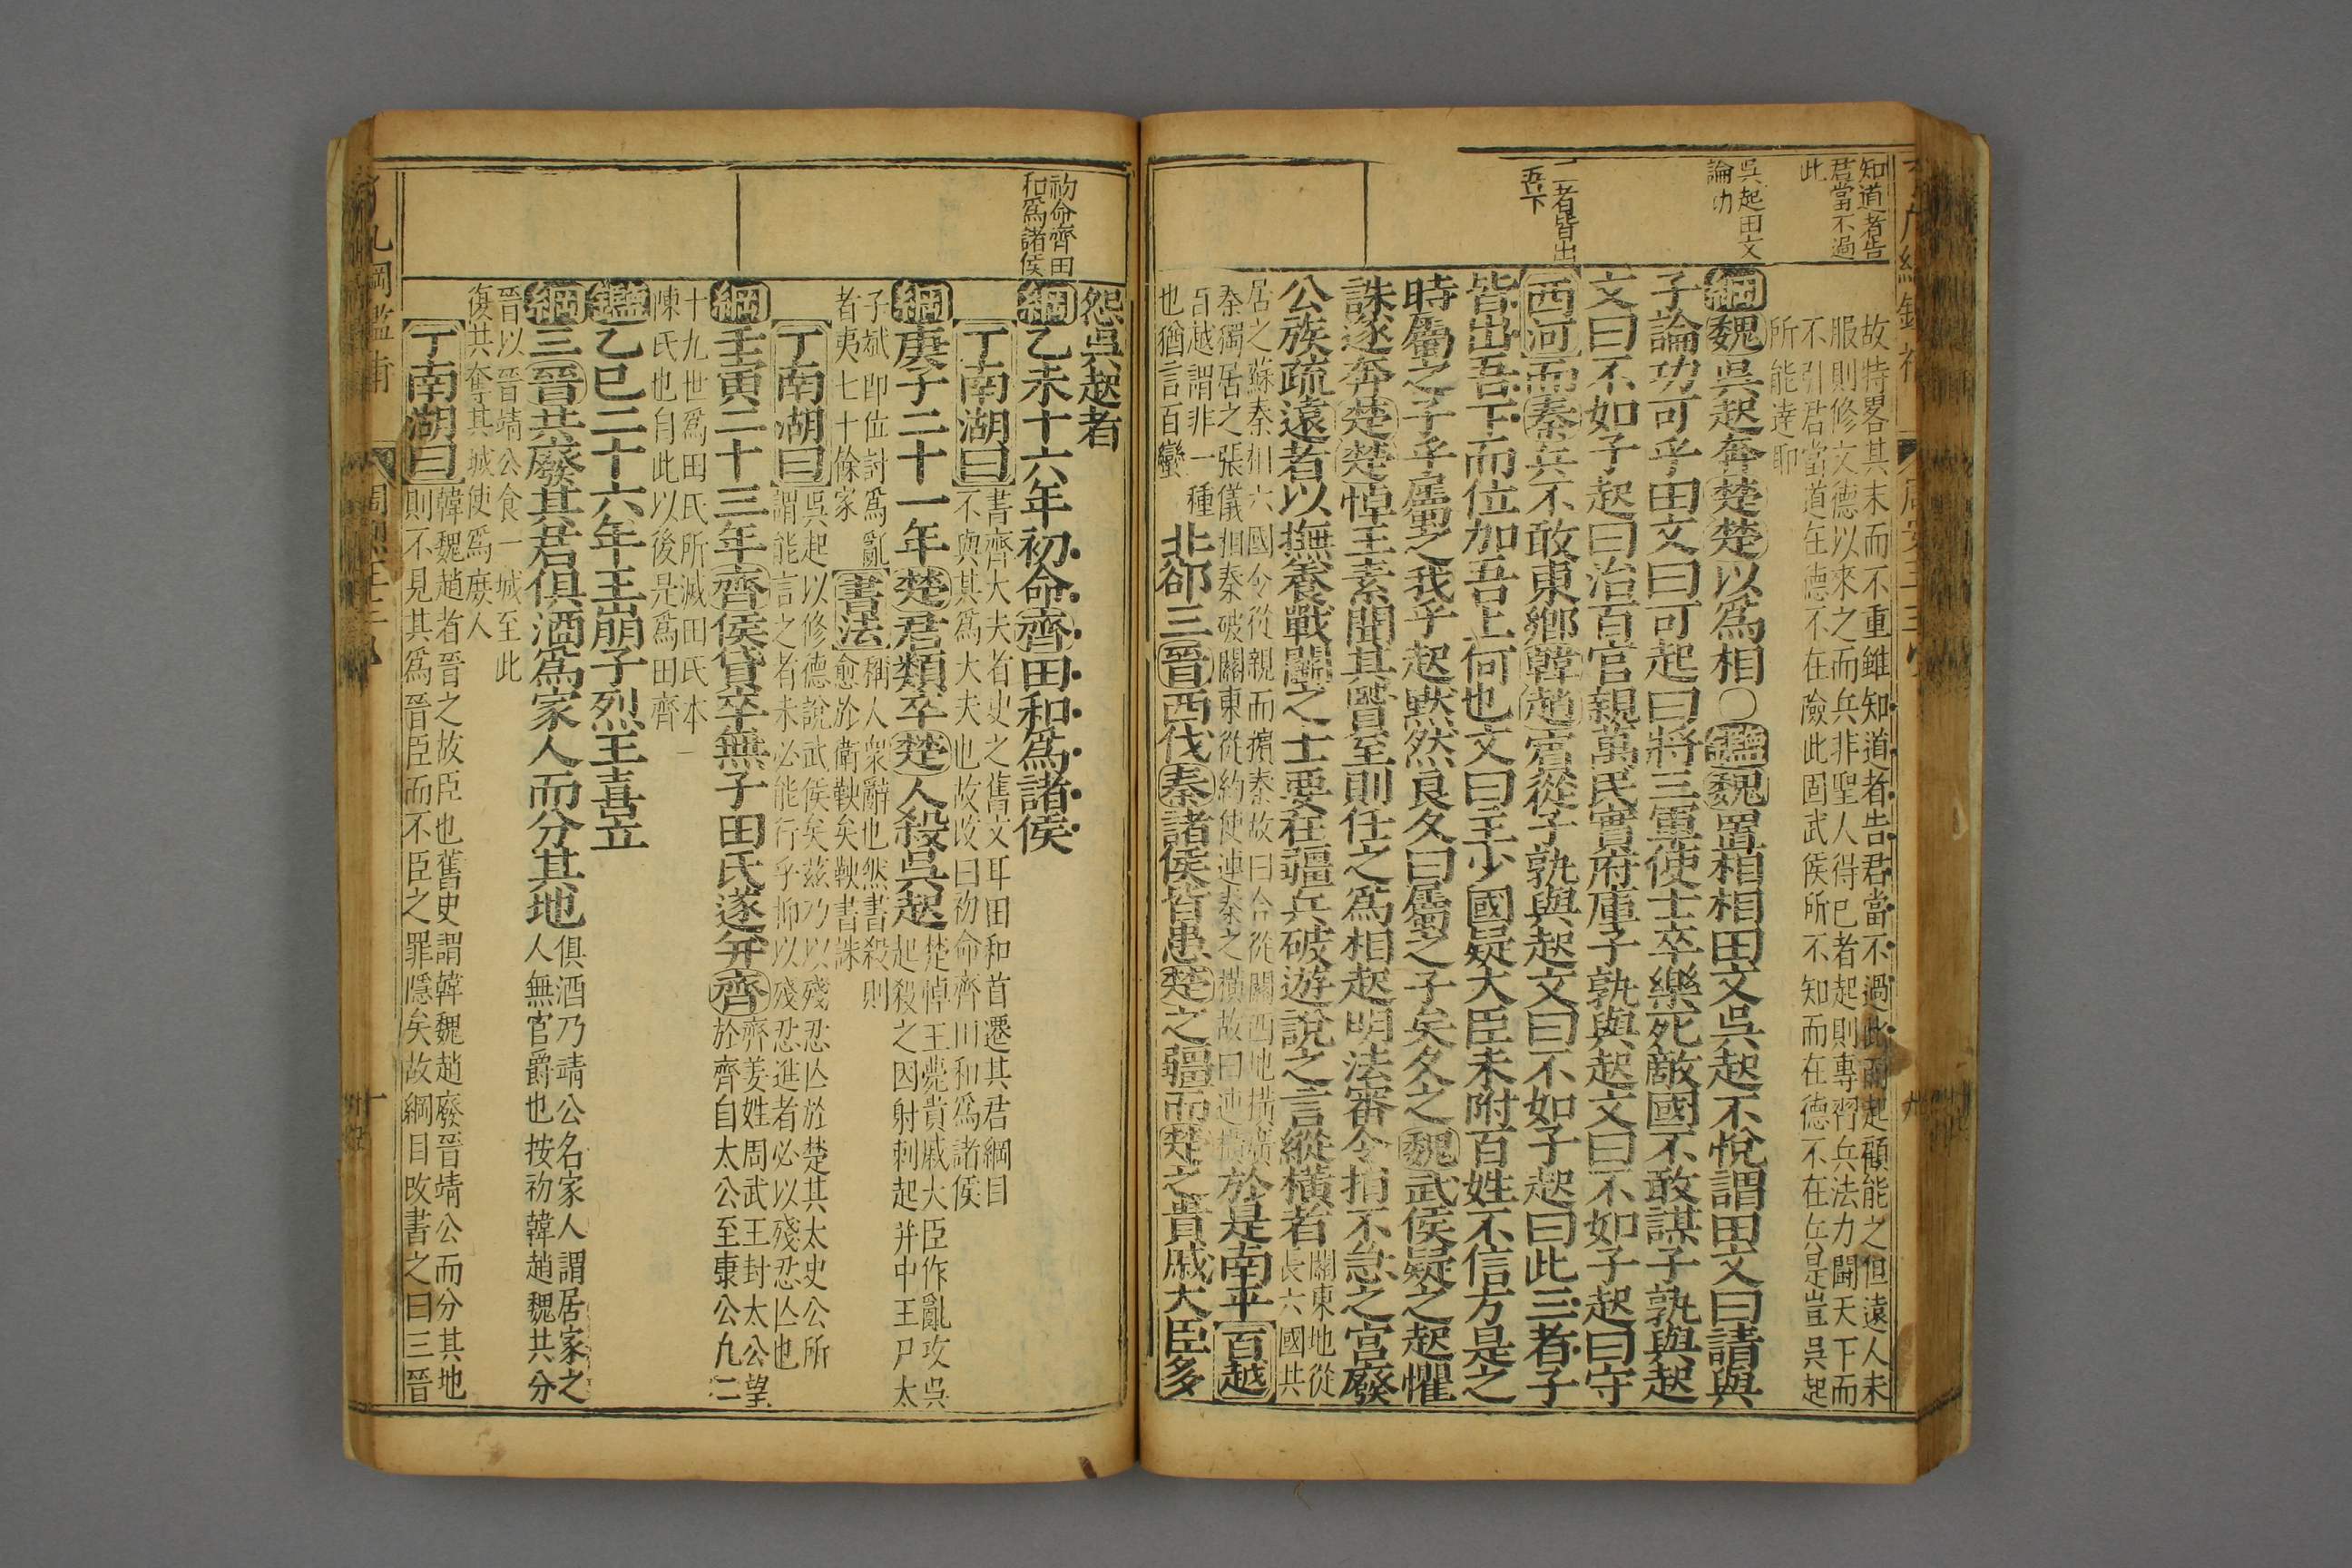 知道者告
君當不過
此
吳起田文
論功
二者皆出
吾下
故特畧其末而不重雖知道者告君當不過此而起顧能之但遠人未
服則修文德以來之而兵非聖人得已者起則專習兵法力闘天下而
不引君當道在德不在險此固武侯所不知而在德不在兵是豈吳起
所能達耶
綱魏吳起奔楚楚以爲相○鑑魏置相相田文吳起不悅謂田文曰請與
子論功可乎田文曰可起曰將三軍使士卒樂死敵國不敢謀子孰與起
文曰不如子起曰治百官親萬民實府庫子孰與起文曰不如子起曰守
西河而秦兵不敢東鄉韓趙賓從子孰與起文曰不如子起曰此三者子
皆出吾下而位加吾上何也文曰主少國疑大臣未附百姓不信方是之
時屬之子乎屬之我乎起默然良久曰屬之子矣久之魏武侯疑之起懼
誅遂奔楚楚悼王素聞其賢至則任之爲相起明法審令捐不急之官廢
公族疏遠者以撫養戰鬭之士要在疆兵破遊說之言縱橫者關東地從
長六國共
居之蘇秦相六國令從親而擯秦故曰合從關西地橫廣
秦獨居之張儀相秦破關東從約使連秦之橫故曰連橫於是南平百越
百越謂非一種
也猶言百蠻北郤三晉西伐秦諸侯皆患楚之疆而楚之貴戚大臣多
初命齊田
和爲諸侯
怨吳起者
綱乙未十六年初命齊田和爲諸侯
丁南湖曰書齊大夫者史之舊文耳田和首遷其君綱目
不與其爲大夫也故改曰初命齊田和爲諸侯
綱庚子二十一年楚君類卒楚人殺吳起楚悼王薨貴戚大臣作亂攻吳
起殺之因射刺起并中王尸太
子臧即位討爲亂
者夷七十餘家書法稱人衆辭也然書殺則
愈於衛鞅矣鞅書誅
丁南湖曰吳起以修德說武侯矣茲乃以殘忍亾於楚其太史公所
謂能言之者未必能行乎抑以殘忍進者必以殘忍亾也
綱壬寅二十三年齊侯貸卒無子田氏遂并齊齊姜姓周武王封太公望
於齊自太公至康公九二
十九世爲田氏所滅田氏本
陳氏也自此以後是爲田齊
鑑乙巳二十六年王崩子烈王喜立
綱三晉共廢其君俱酒爲家人而分其地俱酒乃靖公名家人謂居家之
人無官爵也按初韓趙魏共分
晉以晉靖公食一城至此
復其奪其城使爲庶人
丁南湖曰韓魏趙者晉之故臣也舊史謂韓魏趙廢晉靖公而分其地
則不見其爲晉臣而不臣之罪隱矣故綱目改書之曰三晉